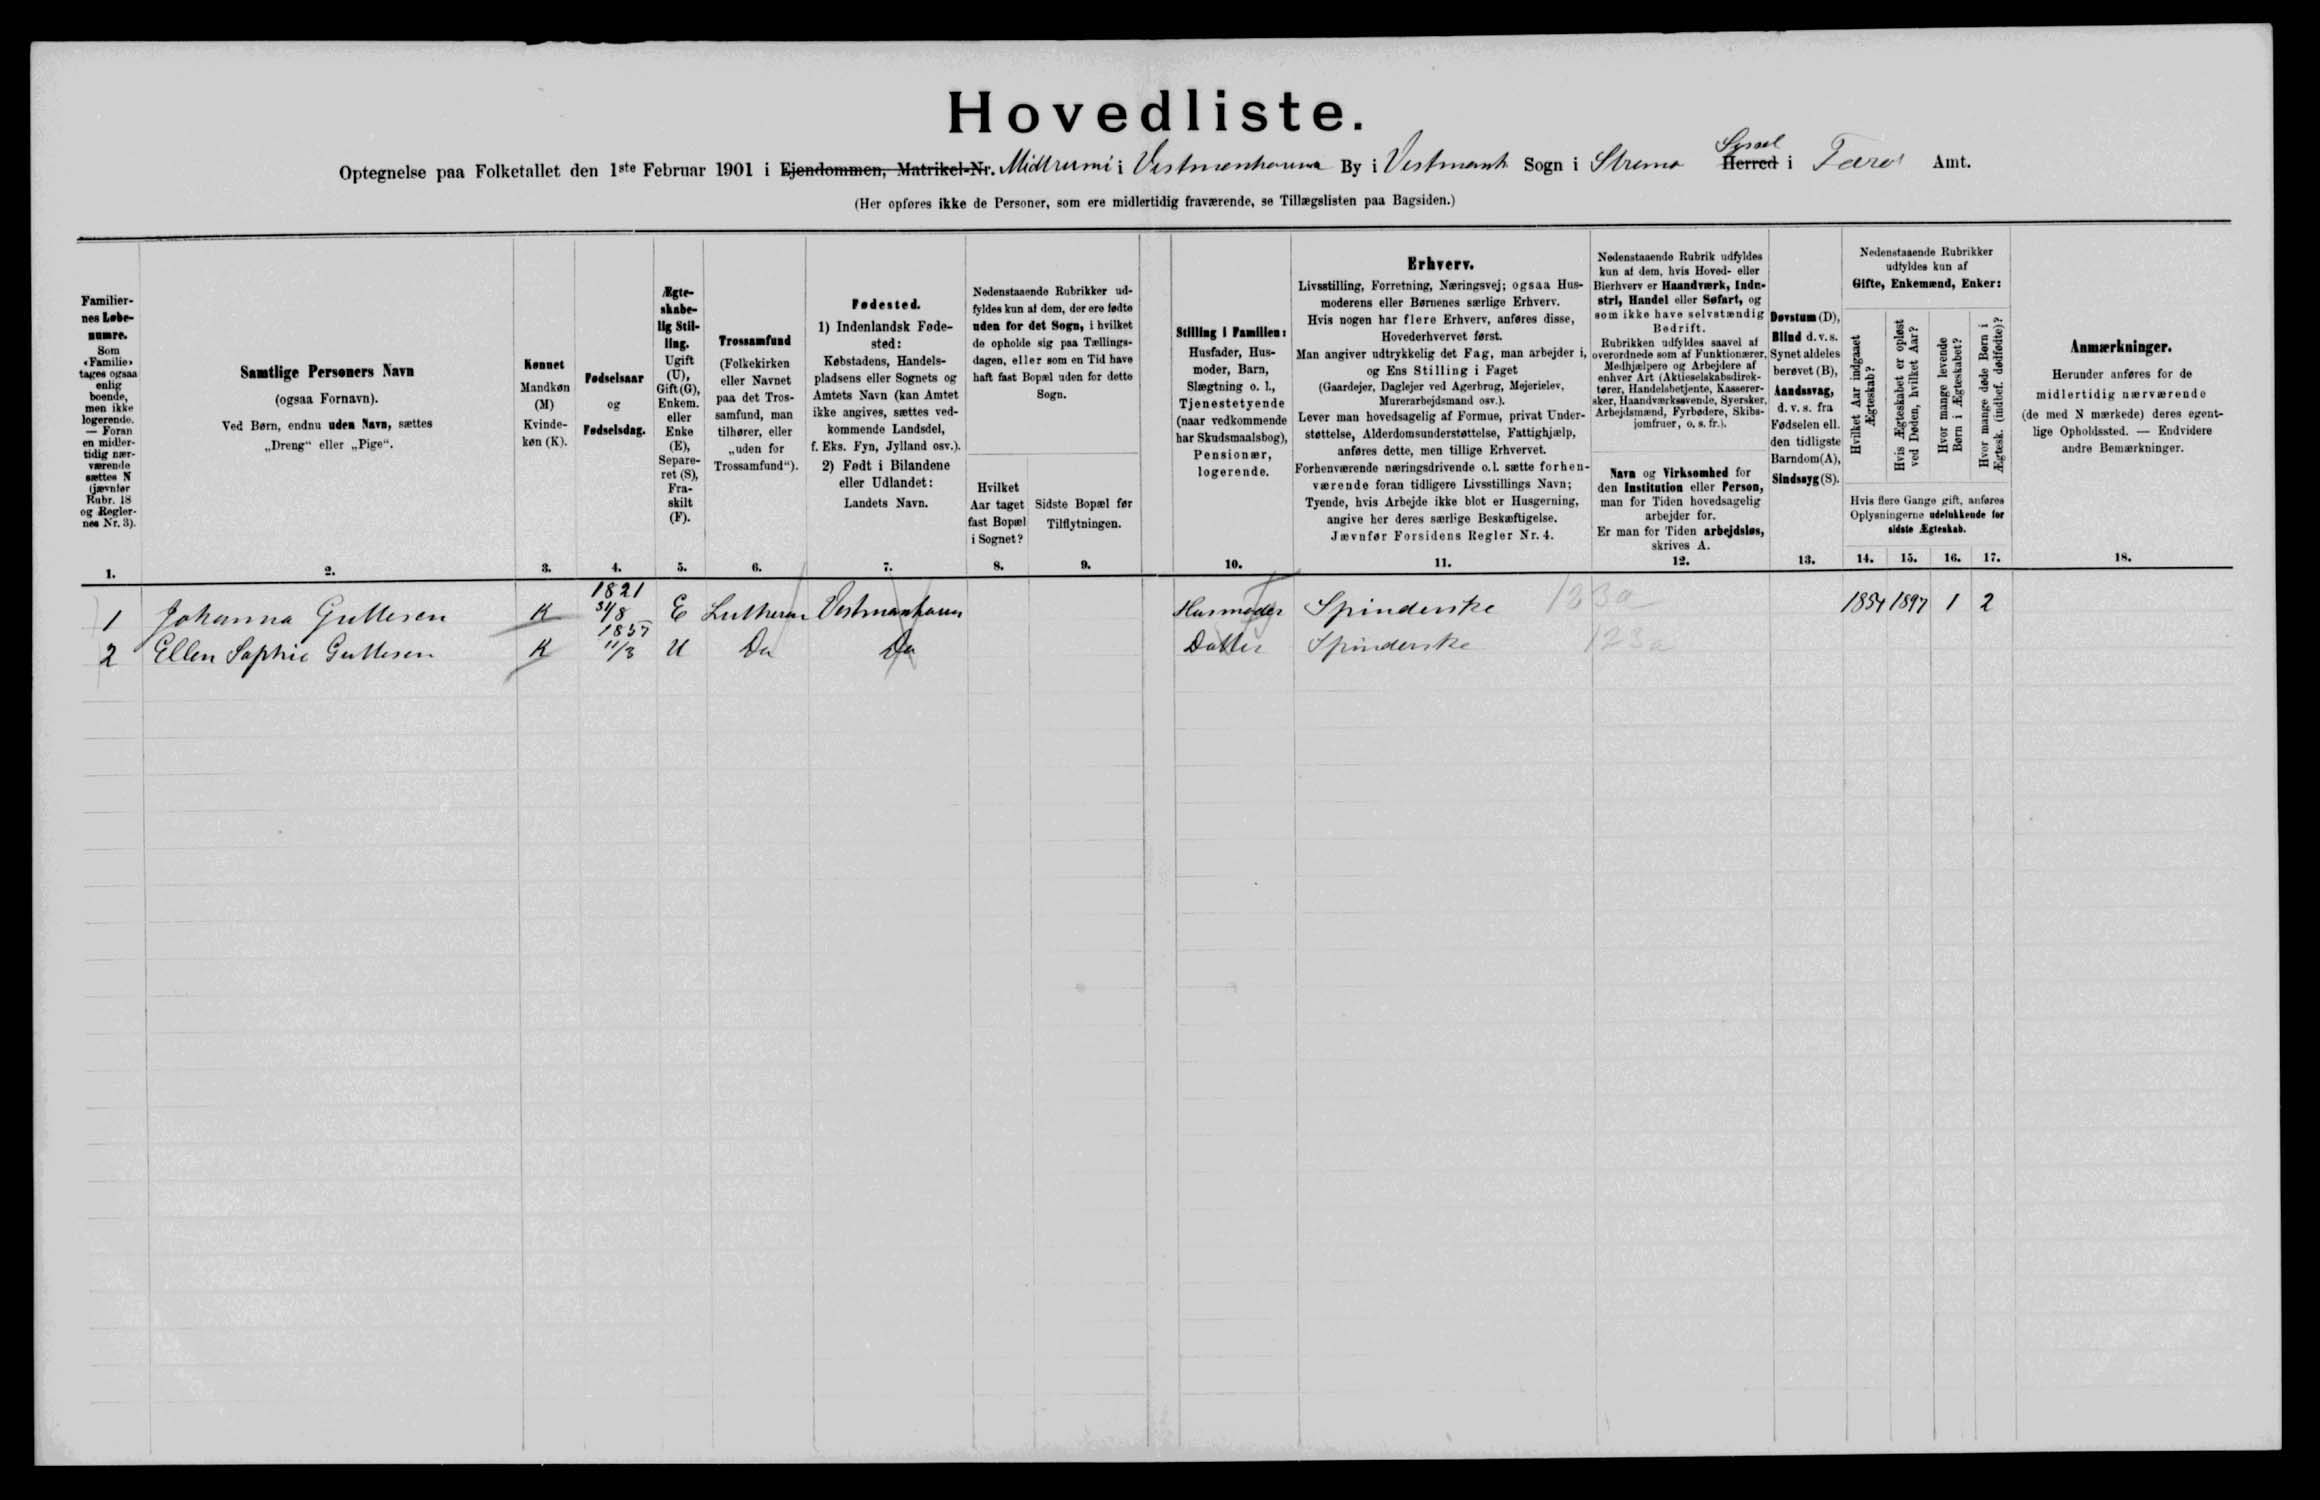 Hovedliste.
Optegnelse paa Folketallet den 1ste Februar 1901 i Ejendommen, Matrikel-Nr. Midtrumi i Vestmenhavn By i Vestmanh Sogn i Strømø Herred Syssel i Færø Amt.
(Her opføres ikke de Personer, som ere midlertidig fraværende, se Tillægslisten paa Bagsiden.)
Familier-
nes Løbe-
numre.
Som
«Familie»
tages ogsaa
enlig
boende,
men ikke
logerende.
— Foran
en midler-
tidig nær-
værende
sættes N
(jævnfør
Rubr. 18
og Regler-
nes Nr. 3).
1.
Samtlige Personers Navn
(ogsaa Fornavn).
Ved Børn, endnu uden Navn, sættes
„Dreng“ eller „Pige“.
2.
Kønnet
Mandkøn
(M)
Kvinde-
køn (K).
3.
Fødselsaar
og
Fødselsdag.
4.
Ægte-
skabe-
lig Stil-
ling.
Ugift
(U),
Gift (G),
Enkem.
eller
Enke
(E),
Separe-
ret (S),
Fra-
skilt
(F).
5.
Trossamfund
(Folkekirken
eller Navnet
paa det Tros-
samfund, man
tilhører, eller
„uden for
Trossamfund“).
6.
Fødested.
1) Indenlandsk Føde-
sted:
Købstadens, Handels-
pladsens eller Sognets og
Amtets Navn (kan Amtet
ikke angives, sættes ved-
kommende Landsdel,
f. Eks. Fyn, Jylland osv.).
2) Født i Bilandene
eller Udlandet:
Landets Navn.
7.
Nedenstaaende Rubrikker ud-
fyldes kun af dem, der ere fødte
uden for det Sogn, i hvilket
de opholde sig paa Tællings-
dagen, eller som en Tid have
haft fast Bopæl uden for dette
Sogn.
Hvilket
Aar taget
fast Bopæl
i Sognet?
8.
Sidste Bopæl før
Tilflytningen.
9.
Stilling i Familien:
Husfader, Hus-
moder, Barn,
Slægtning o. l.,
Tjenestetyende
(naar vedkommende
har Skudsmaalsbog),
Pensionær,
logerende.
10.
Erhverv.
Livsstilling, Forretning, Næringsvej; ogsaa Hus-
moderens eller Børnenes særlige Erhverv.
Hvis nogen har flere Erhverv, anføres disse,
Hovederhvervet først.
Man angiver udtrykkelig det Fag, man arbejder i,
og Ens Stilling i Faget
(Gaardejer, Daglejer ved Agerbrug, Mejerielev,
Murerarbejdsmand osv.).
Lever man hovedsagelig af Formue, privat Under-
støttelse, Alderdomsunderstøttelse, Fattighjælp,
anføres dette, men tillige Erhvervet.
Forhenværende næringsdrivende o. l. sætte forhen-
værende foran tidligere Livsstillings Navn;
Tyende, hvis Arbejde ikke blot er Husgerning,
angive her deres særlige Beskæftigelse.
Jævnfør Forsidens Regler Nr. 4.
11.
Nedenstaaende Rubrik udfyldes
kun af dem, hvis Hoved- eller
Bierhverv er Haandværk, Indu-
stri, Handel eller Søfart, og
som ikke have selvstændig
Bedrift.
Rubrikken udfyldes saavel af
overordnede som af Funktionærer,
Medhjælpere og Arbejdere af
enhver Art (Aktieselskabsdirek-
tører, Handelsbetjente, Kasserer-
sker, Haandværkssvende, Syersker,
Arbejdsmænd, Fyrbødere, Skibs-
jomfruer, o. s. fr.).
Navn og Virksomhed for
den Institution eller Person,
man for Tiden hovedsagelig
arbejder for.
Er man for Tiden arbejdsløs,
skrives A.
12.
Døvstum (D),
Blind d. v. s.
Synet aldeles
berøvet (B),
Aandssvag,
d. v. s. fra
Fødselen ell.
den tidligste
Barndom (A),
Sindssyg (S).
13.
Nedenstaaende Rubrikker
udfyldes kun af
Gifte, Enkemænd, Enker:
Hvilket Aar indgaaet
Ægteskab?
Hvis Ægteskabet er opløst
ved Døden, hvilket Aar?
Hvor mange levende
Børn i Ægteskabet?
Hvor mange døde Børn i
Ægtesk. (indbef. dødfødte)?
Hvis flere Gange gift, anføres
Oplysningerne udelukkende for
sidste Ægteskab.
14. 15. 16. 17.
Anmærkninger.
Herunder anføres for de
midlertidig nærværende
(de med N mærkede) deres egent-
lige Opholdssted. — Endvidere
andre Bemærkninger.
18.
1821
1 Johanna Guttesen K 31/8 E Lutheran Vestmanhavn Husmoder Spinderske 123a 1854 1897 1 2
1857
2 Ellen Sophie Guttesen K 11/3 U Do Do Datter Spinderske 123a